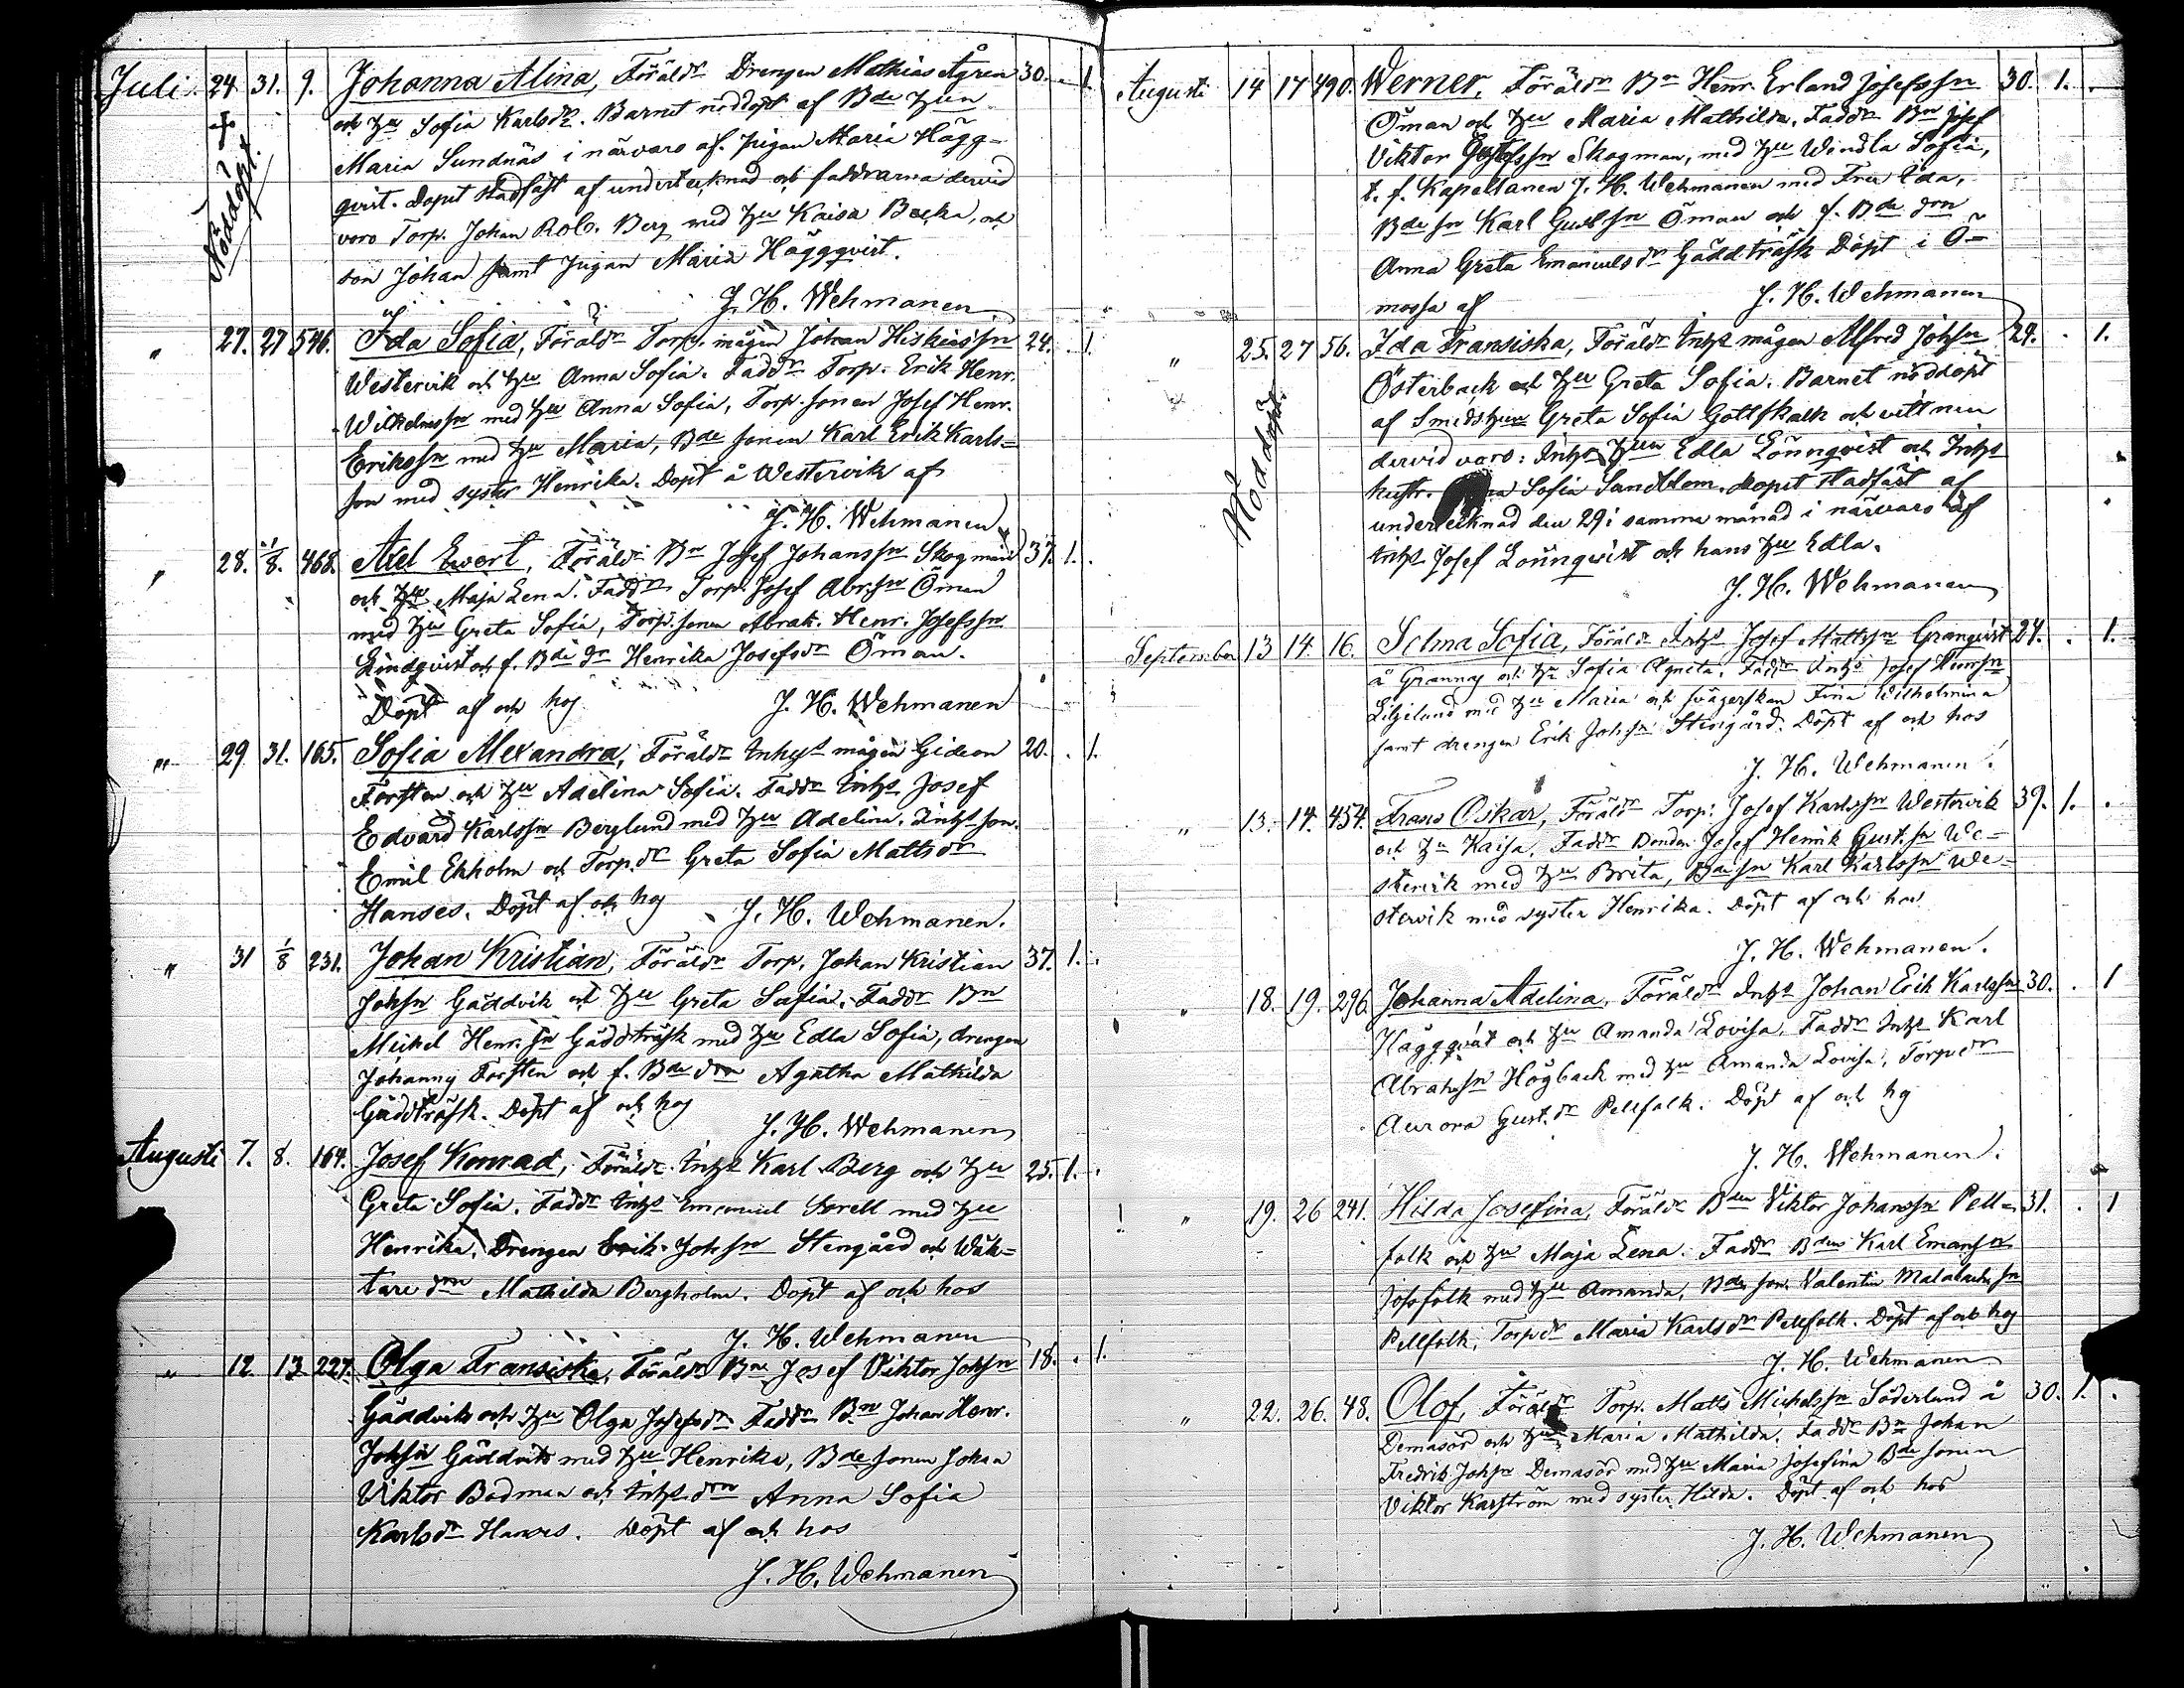 Juli. 24 31. 9. Johanna Alina, Föräldr Drengen Mathias Ågren 30. . 1.
och hu Sofia Karlsdr. Barnet nöddöpt af Bde hun
Maria Sundnäs i närvaro af pigan Maria Hägg=
Nöddöpt.
qvist. Dopet stadfäst af undertecknad och faddrarna dervid
voro Torp. Johan Rob. Berg med hu Kaisa Backa, och
son Johan samt pigan Maria Häggqvist.
J. H. Wehmanen
" 27. 27 546. Ida Sofia, Föräldr Torp. mågen Johan Hiskiass:n 24. . 1.
Westervik och hu Anna Sofia. Faddr Torp. Erik Henr.
Wilhelmss:n med hu Anna Sofia, Torp. sonen Josef Henr.
Erikss:n med hu Maria, Bde sonen Karl Erik Karls=
son med syster Henrika. Döpt å Westervik af
J. H. Wehmanen
" 28. 1/8. 468. Axel Ewert, Föräldr Bn Josef Johanss:n Skogman 37. 1.
och hu Maja Lena. Faddr Torp. Josef Abr.s:n Öman
med hu Greta Sofia, Torp. sonen Abrah. Henr. Josefss:n
Lindqvist och f. Bde dr Henrika Josefsdr Öman.
Döpt af och hos
J. H. Wehmanen
" 29 31. 165. Sofia Alexandra, Föräldr Inhys mågen Gideon 20. . 1.
Forsten och hu Adelina Sofia. Faddr Inhys Josef
Edvard Karlss:n Berglund med hu Adelina. Inhys son.
Emil Ekholm och Torp. dr Greta Sofia Mattsdr
Hanses. Döpt af och hos
J. H. Wehmanen.
" 31 1/8 231. Johan Kristian, Föräldr Torp. Johan Kristian 37. 1. .
Johs:n Gäddvik och hu Greta Sofia. Faddr Bn
Mickel Henr. s:n Gäddträsk med hu Edla Sofia, drengen
Johannes Forsten och f. Bde drn Agatha Mathilda
Gäddträsk. Döpt af och hos
J. H. Wehmanen
Augusti 7. 8. 164. Josef Konrad, Föräldr Inhys Karl Berg och hu 25. 1. .
Greta Sofia. Faddr Inhys Emanuel Sorell med hu
Henrika, Drengen Erik Johs:n Stengård och Wäk=
tare drn Mathilda Bergholm. Döpt af och hos
J. H. Wehmanen
" 12. 13 227. Olga Fransiska, Föräldr Bn Josef Viktor Johs:n 18. . 1.
Gäddvik och hu Olga Josefsdr Faddr Bn Johan Henr.
Johs:n Gäddvik med hu Henrika, Bde sonen Johan
Viktor Bodman och Inhys drn Anna Sofia
Karlsdr Hanses. Döpt af och hos
J. H. Wehmanen
Augusti 14 17 490. Werner, Föräldr Bn Henr. Erland Josefss:n 30. 1. .
Öman och hu Maria Mathilda. Faddr Bn Josef
Viktor Gustafss:n Skogman, med hu Windla Sofia,
t. f. Kapellanen J. H. Wehmanen med Fru Ida,
Bde sn Karl Gustss:n Öman och f. Bde drn
Anna Greta Emanuelsdr Gäddträsk Döpt i Ö=
mossa af
J. H. Wehmanen
" 25. 27 56. Ida Fransiska, Föräldr Inhys mågen Alfred Johs:n 24. . 1.
Österback och hu Greta Sofia. Barnet nöddöpt
af Smeds hun Greta Sofia Gottskalk och vittnen
Nöddöpt.
dervid voro: Inhys hun Edla Lönnqvist och Inhys
hustr. Sofia Sandblom. Dopet stadfäst af
undertecknad den 29 i samma månad i närvaro af
Inhys Josef Lönnqvist och hans hu Edla.
J. H. Wehmanen
September 13 14. 16. Selma Sofia, Föräldr Inhys Josef Mattss:n Granqvist 24. . 1.
å Grannas och hu Sofia Agneta. Faddr Inhys Josef Henrs:n
Liljelund med hu Maria och svägerskan Fina Wilhelmina
samt drengen Erik Johs:n Stengård. Döpt af och hos
J. H. Wehmanen.
" 13. 14. 454. Frans Oskar, Föräldr Torp. Josef Karlss:n Westervik 39. 1. .
och hu Kaisa. Faddr Bonden Josef Henrik Gust.s:n We=
stervik med hu Brita, Bde sn Karl Karlss:n We=
stervik med syster Henrika. Döpt af och hos
J. H. Wehmanen.
" 18. 19. 296. Johanna Adelina, Föräldr Inhys Johan Erik Karlss:n 30. . 1
Häggqvist och hu Amanda Lovisa. Faddr Inhys Karl
Abrahs:n Högback med hu Amanda Lovisa, Torpdr
Aurora Gust.dr Pellfolk. Döpt af och hos
J. H. Wehmanen.
" 19. 26 241. Hilda Josefina, Föräldr Bden Viktor Johanss:n Pell= 31. . 1
folk och hu Maja Lena. Faddr Bden Karl Emans:n
Josfolk med hu Amanda, Bde son Valentin
Pellfolk, Torpdr Maria Karlsdr Pellfolk. Döpt af och hos
J. H. Wehmanen
" 22. 26. 48. Olof, Föräldr Torp. Matts Mickelss:n Söderlund å 30. 1. .
Demasör och hu Maria Mathilda. Faddr Bn Johan
Fredrik Johs:n Demasör med hu Maria Josefina Bde sonen
Viktor Karström med syster Hilda. Döpt af och hos
J. H. Wehmanen